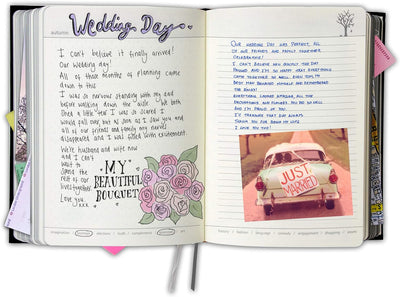 autumn
Wedding Day
I can't believe it finally arrived!
Our wedding day!
All of those months of planning came
down to this
I was so nervous standing with my dad
before walking down the aisle. We both
shed a little tear. I was so scared I
would fall over but as soon as I saw you and
all of our friends and family my nerves
disappeared and I was filled with excitement.
We're husband and wife now
and I can't
wait to
spend the
rest of our
lives together
Love you
xxx
MY
BEAUTIFUL
BOUQUET
Our wedding day was perfect, all
of our friends and family together
celebrating!
I can't believe how quickly the day
passed and I'm so happy that everything
came together so well. Even the
best man behaved himself and remembered
the rings!
Everything looked amazing, all the
decorations and flowers. You did so well
and I'm so proud of you.
I'll treasure that day always
Thank you for being my wife
I love you too!
JUST
MARRIED